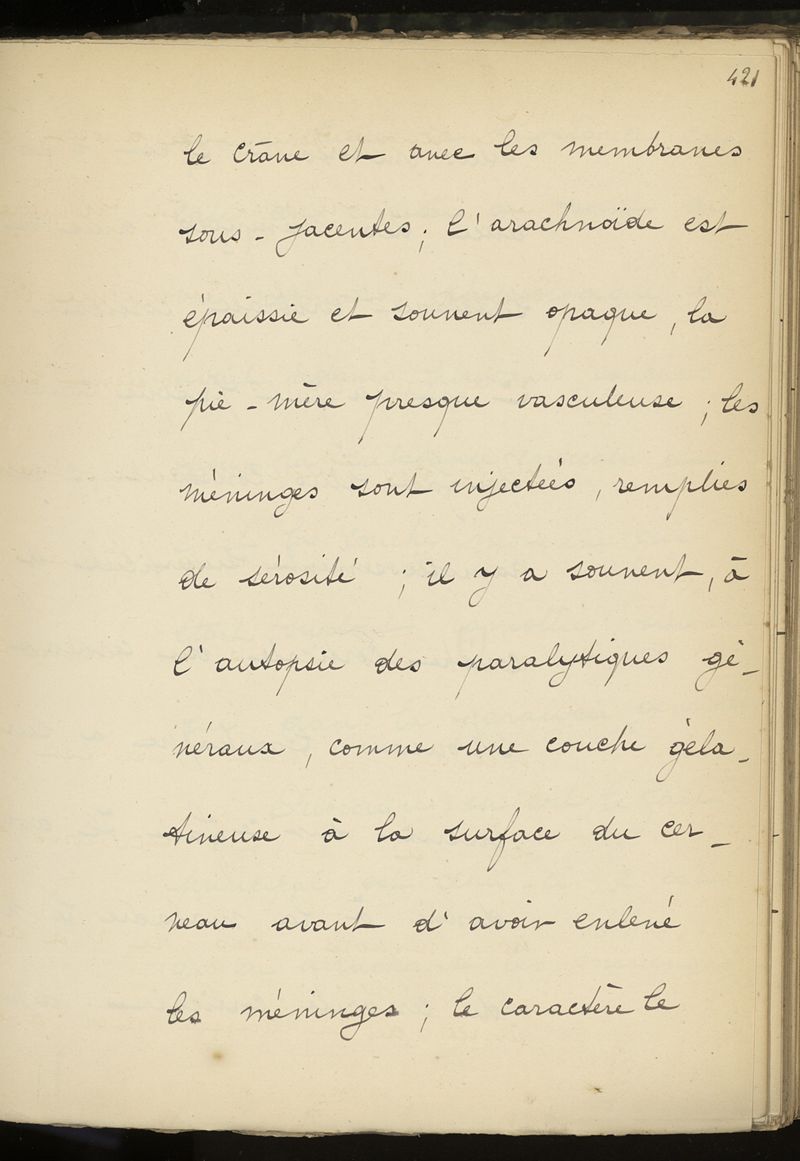 421
le crâne et avec les membranes
sous-jacentes; l'arachnoïde est
épaissie et souvent opaque, la
pie-mère presque vasculeuse; les
méninges sont injectées, remplies
de sérosité; il y a souvent, à
l'autopsie des paralytiques gé-
néraux, comme une couche géla-
tineuse à la surface du cer-
veau avant d'avoir enlevé
les méninges; le caractère le